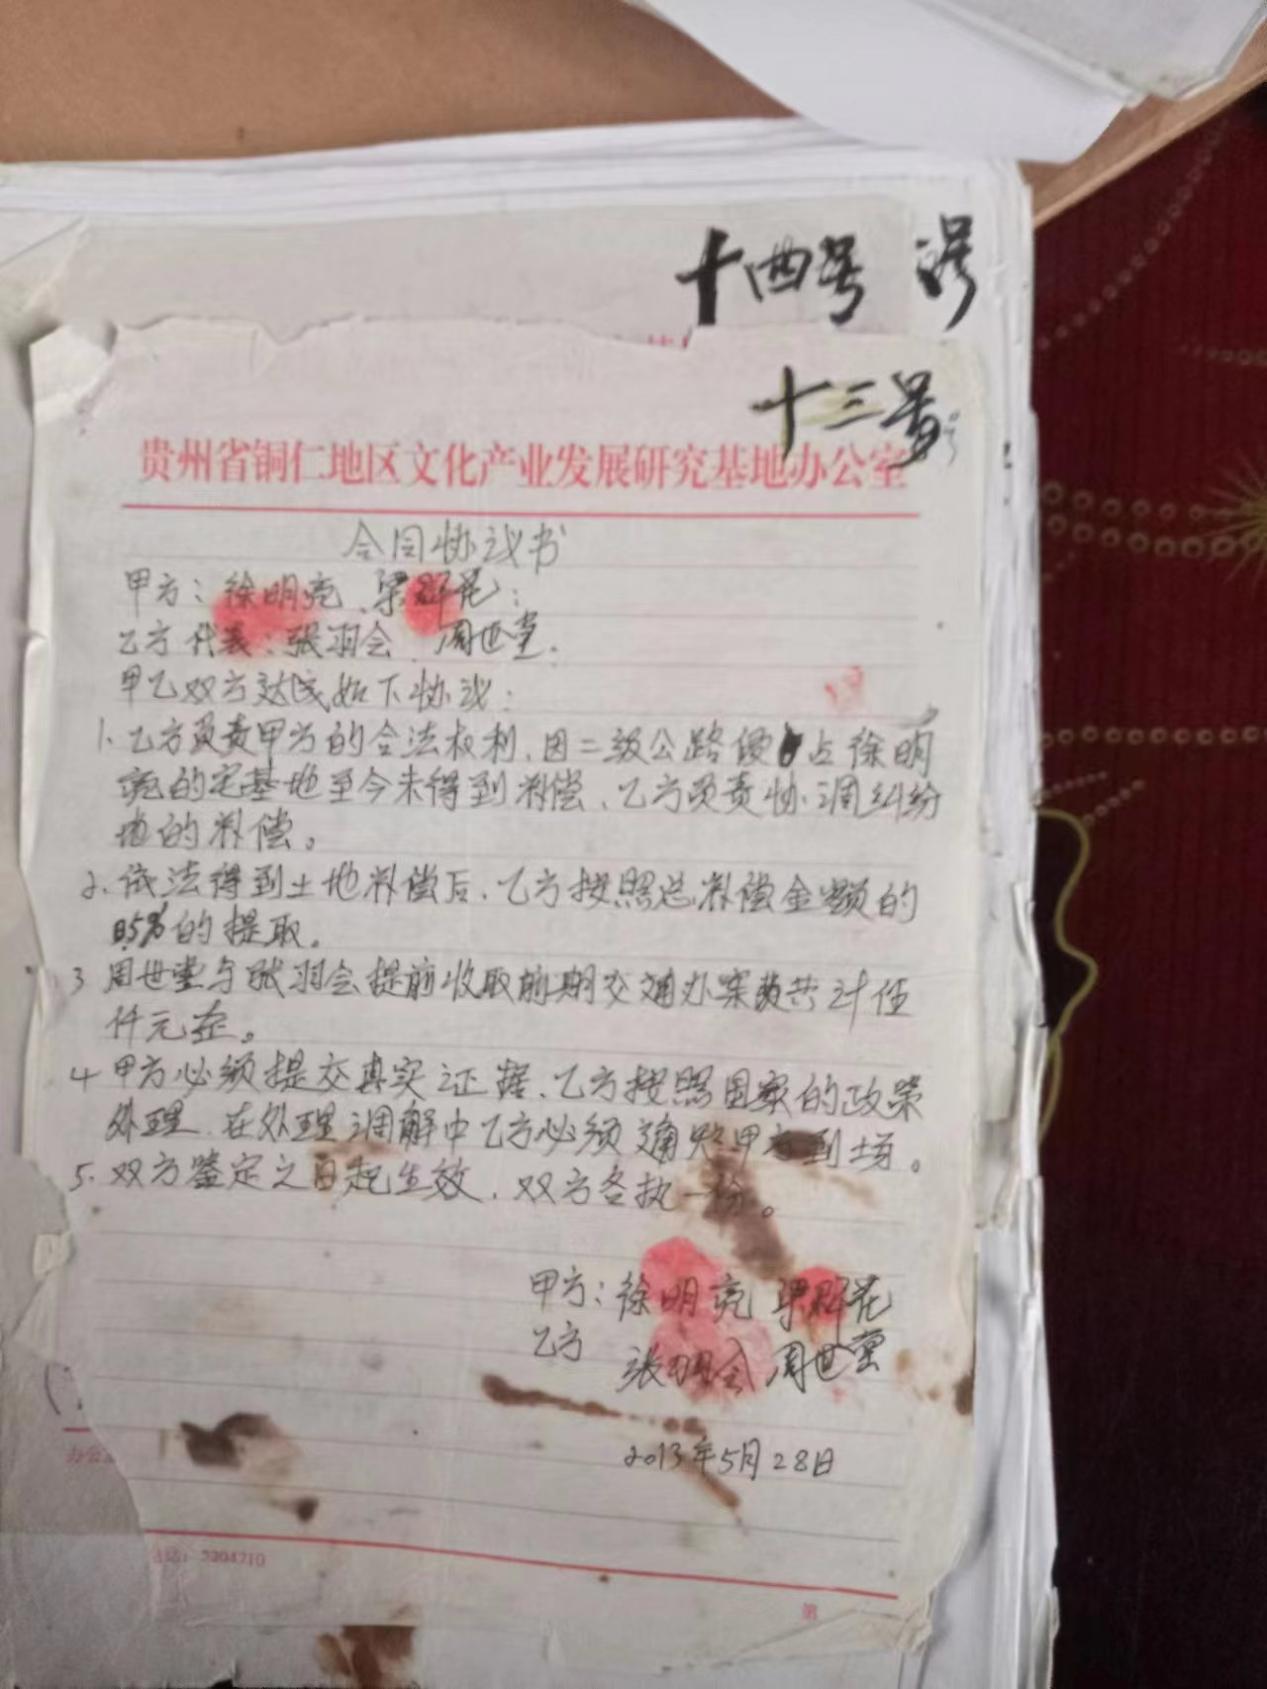 十四号
十三号
贵州省铜仁地区文化产业发展研究基地办公室
合同协议书
甲方：徐明亮、梁群花：
乙方代表：张羽会、周世堂.
甲乙双方达成如下协议：
1.乙方负责甲方的合法权利,因二级公路侵占徐明
亮的宅基地至今未得到补偿、乙方负责协调纠纷
地的补偿。
2.依法得到土地补偿后、乙方按照总补偿金额的
的提取。
3 周世堂与张羽会提前收取前期交通办案费共计伍
仟元正。
4 甲方必须提交真实证据、乙方按照国家的政策
处理.在处理调解中乙方必须通知甲方到场。
5.双方鉴定之日起生效.双方各执一份。
甲方：徐明亮 梁群花
乙方 张羽会 周世堂
2013年5月28日
办公
电话：5204710
第